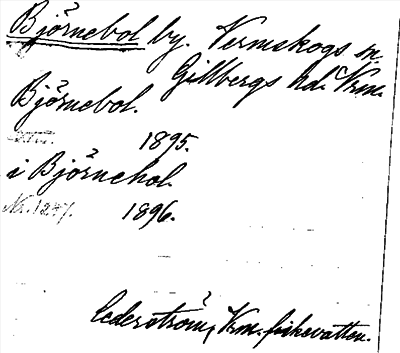 Björnebol by. Vermskogs sn.
Gillbergs hd. Vrm.
Björnebol.
1895.
i Björnebol.
1896.
Cederström, Vrm. fiskevatten.